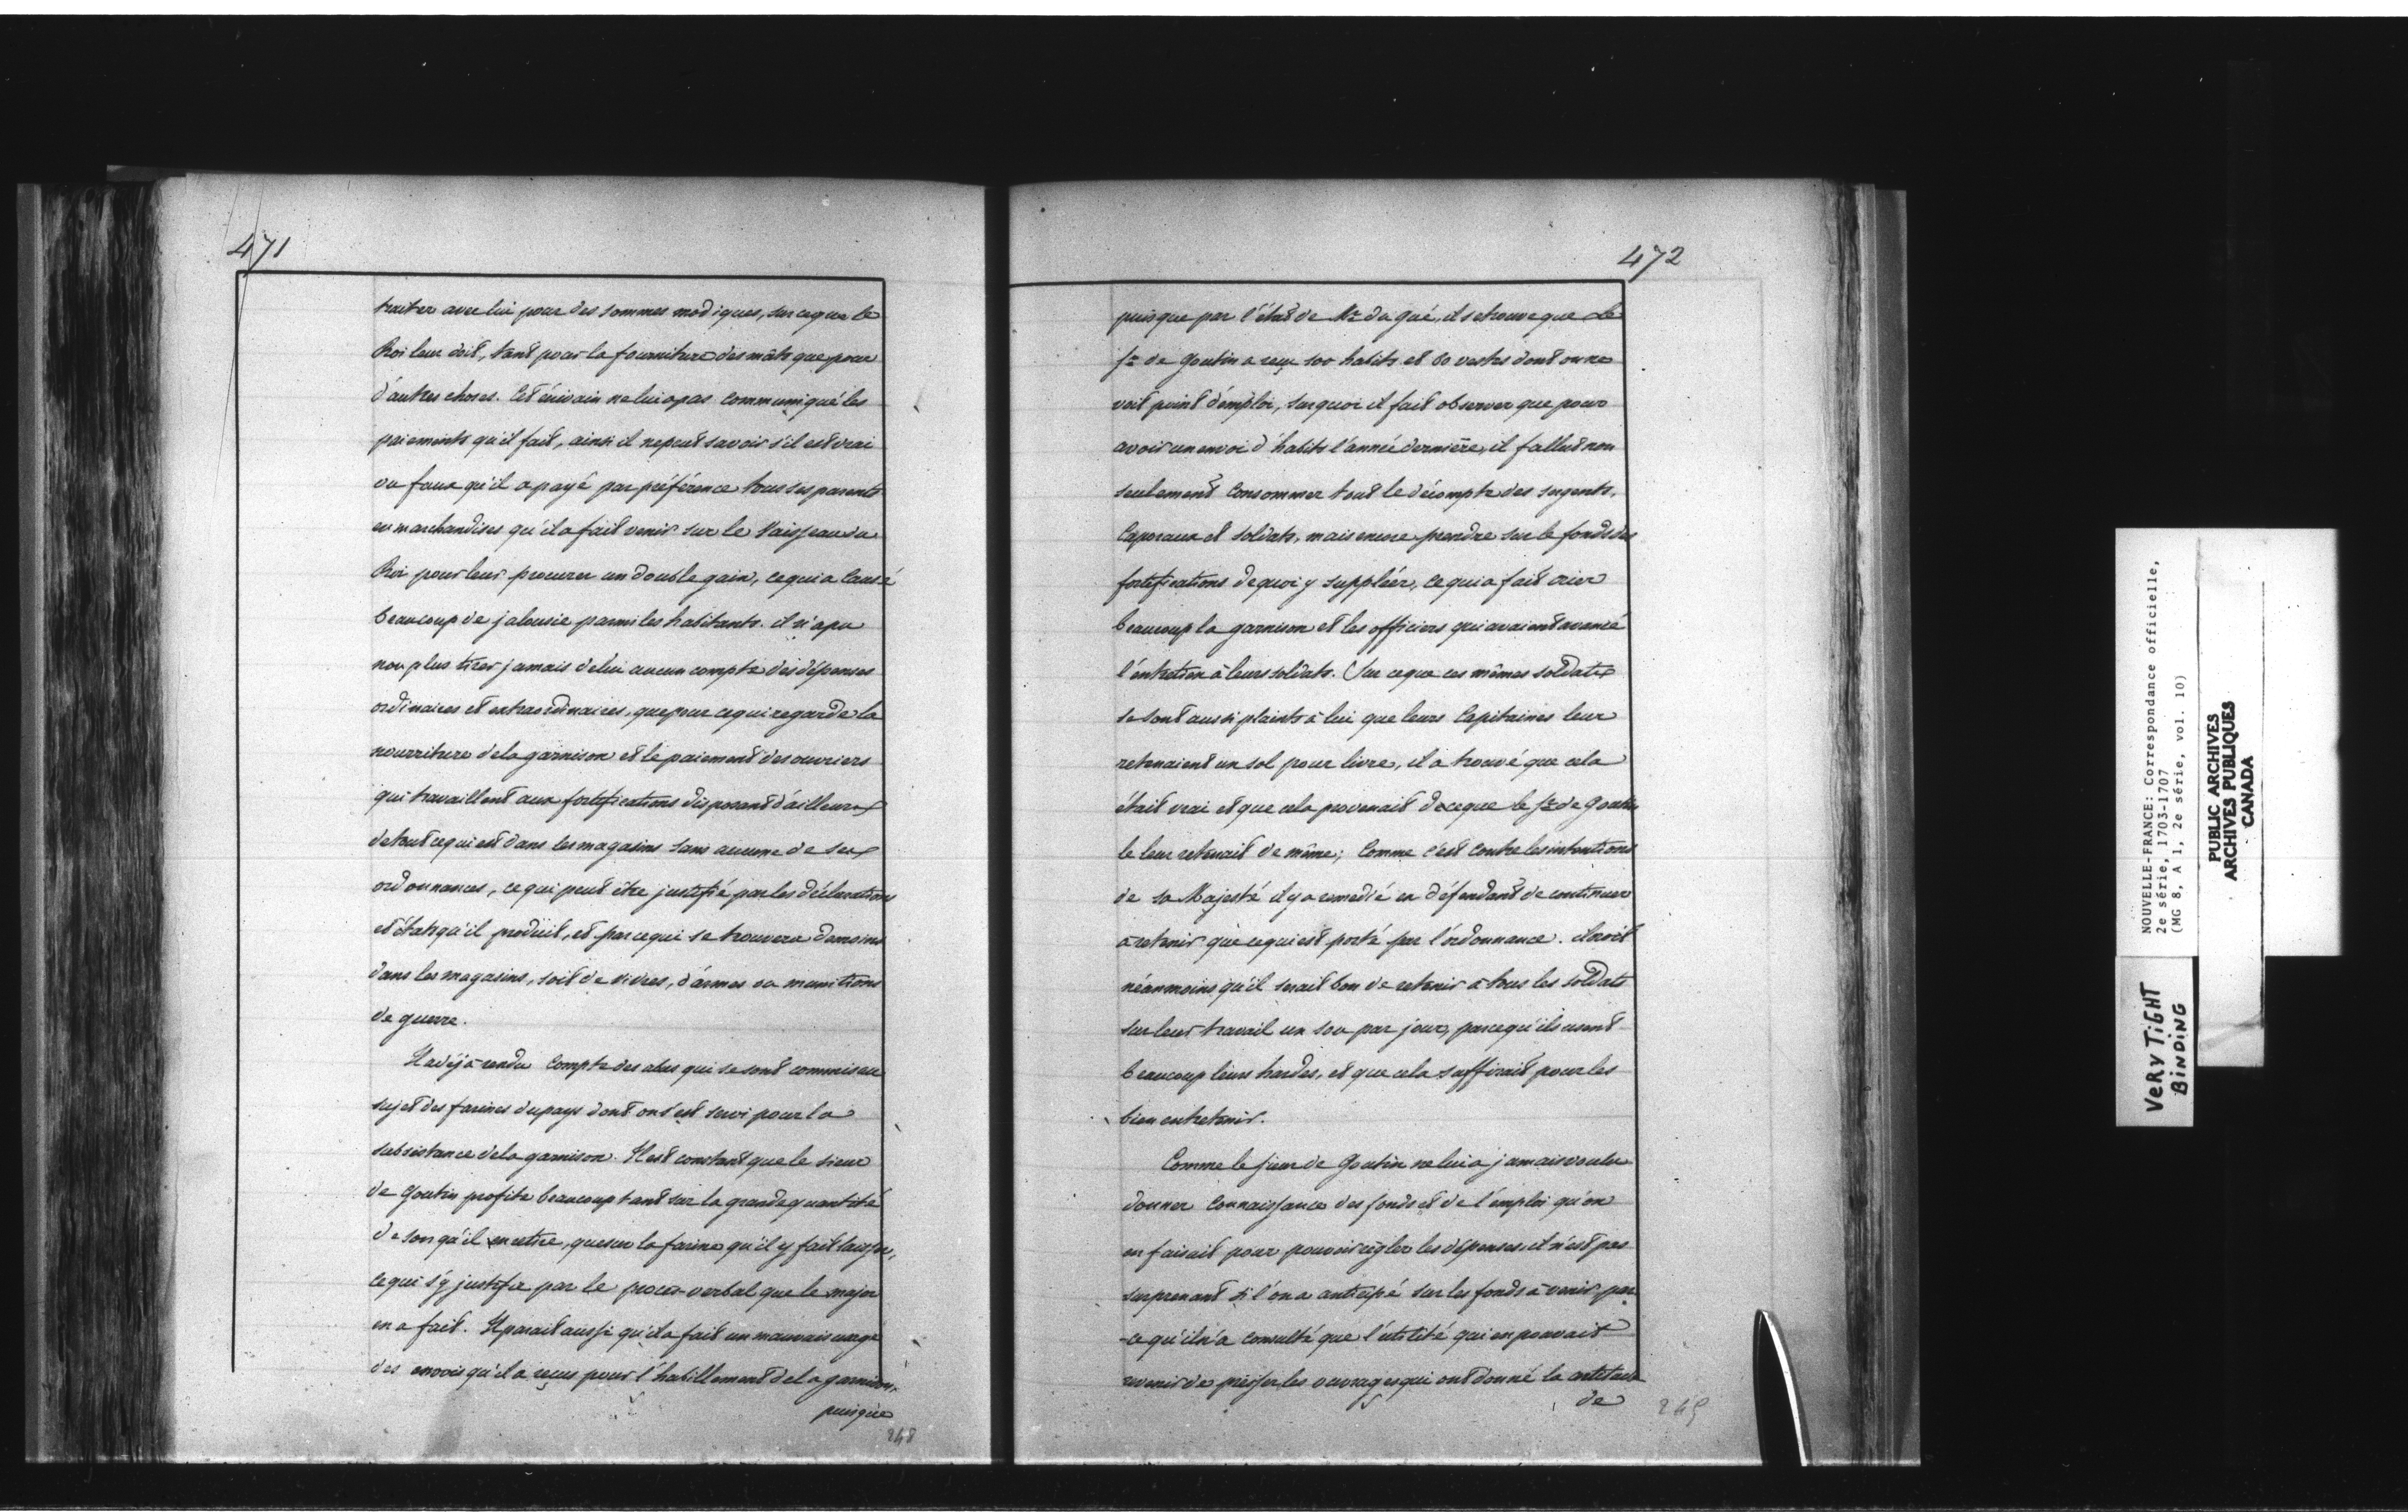 471
traiter avec lui pour des sommes modiques, sur ce que le
Roi leur doit, tant pour la fourniture des mâts que pour
d'autres choses. Cet écrivain ne lui a pas communiqué les
paiements qu'il fait, ainsi il ne peut savoir s'il est vrai
ou faux qu'il a payé par préférence tous ses parents
en marchandises qu'il a fait venir sur le Vaisseau du
Roi pour leur procurer un double gain, ce qui a causé
beaucoup de jalousie parmi les habitants. il n'a pu
non plus tirer jamais de lui aucun compte des dépenses
ordinaires et extraordinaires, que pour ce qui regarde la
nourriture de la garnison et le paiement des ouvriers
qui travaillent aux fortifications disposant d'ailleurs
de tout ce qui est dans les magasins sans aucune de ses
ordonnances, ce qui peut être justifié par les déclarations
et états qu'il produit, et par ce qui se trouvera de moins
dans les magasins, soit de vivres, d'armes ou munitions
de guerre.
Il a déjà rendu compte des abus qui se sont commis au
sujet des farines du pays dont on s'est servi pour la
subsistance de la garnison. Il est constant que le sieur
de Goutin profite beaucoup tant sur la grande quantité
de son qu'il en retire, que sur la farine qu'il y fait laisser,
ce qui s'y justifie par le procès-verbal que le major
en a fait. Il parait aussi qu'il a fait un mauvais usage
des envois qu'il a reçus pour l'habillement de la garnison,
puisque
248
472
puisque par l'état de Mr du Gué, il se trouve que le
Sr de Goutin a reçu 100 habits et 80 vestes dont on ne
voit point d'emploi, sur quoi il fait observer que pour
avoir un envoi d'habits l'année dernière, il fallut non
seulement consommer tout le décompte des sergents,
Caporaux et soldats, mais encore prendre sur le fonds des
fortifications de quoi y suppléer, ce qui a fait crier
beaucoup la garnison et les officiers qui avaient avancé
l'entretien à leurs soldats. Sur ce que ces mêmes soldats
se sont aussi plaints à lui que leurs Capitaines leur
retenaient un sol pour livre, il a trouvé que cela
était vrai et que cela provenait de ce que le Sr de Goutin
le leur retenait de même; Comme c'est contre les intentions
de sa Majesté il y a remédié en défendant de continuer
à retenir que ce qui est porté par l'ordonnance. il croit
néanmoins qu'il serait bon de retenir à tous les soldats
sur leur travail un sou par jour, parce qu'ils usent
beaucoup leurs hardes, et que cela suffirait pour les
bien entretenir.
Comme le sieur de Goutin ne lui a jamais voulu
donner connaissance des fonds et de l'emploi qu'on
en faisait pour pouvoir régler les dépenses, il n'est pas
surprenant si l'on a anticipé sur les fonds à venir par
-ce qu'il n'a consulté que l'utilité qui en pouvait
revenir de presser les ouvrages qui ont donné la
de
249
NOUVELLE-FRANCE: Correspondance officielle,
2e série, 1703-1707
(MG 8, A 1, 2e série, vol. 10)
PUBLIC ARCHIVES
ARCHIVES PUBLIQUES
CANADA
VERY TIGHT
BINDING